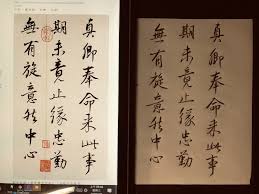 真卿奉命来此事
期未竟止缘忠勤
無有旋意然中心
真卿奉命来此事
期未竟止缘忠勤
無有旋意然中心